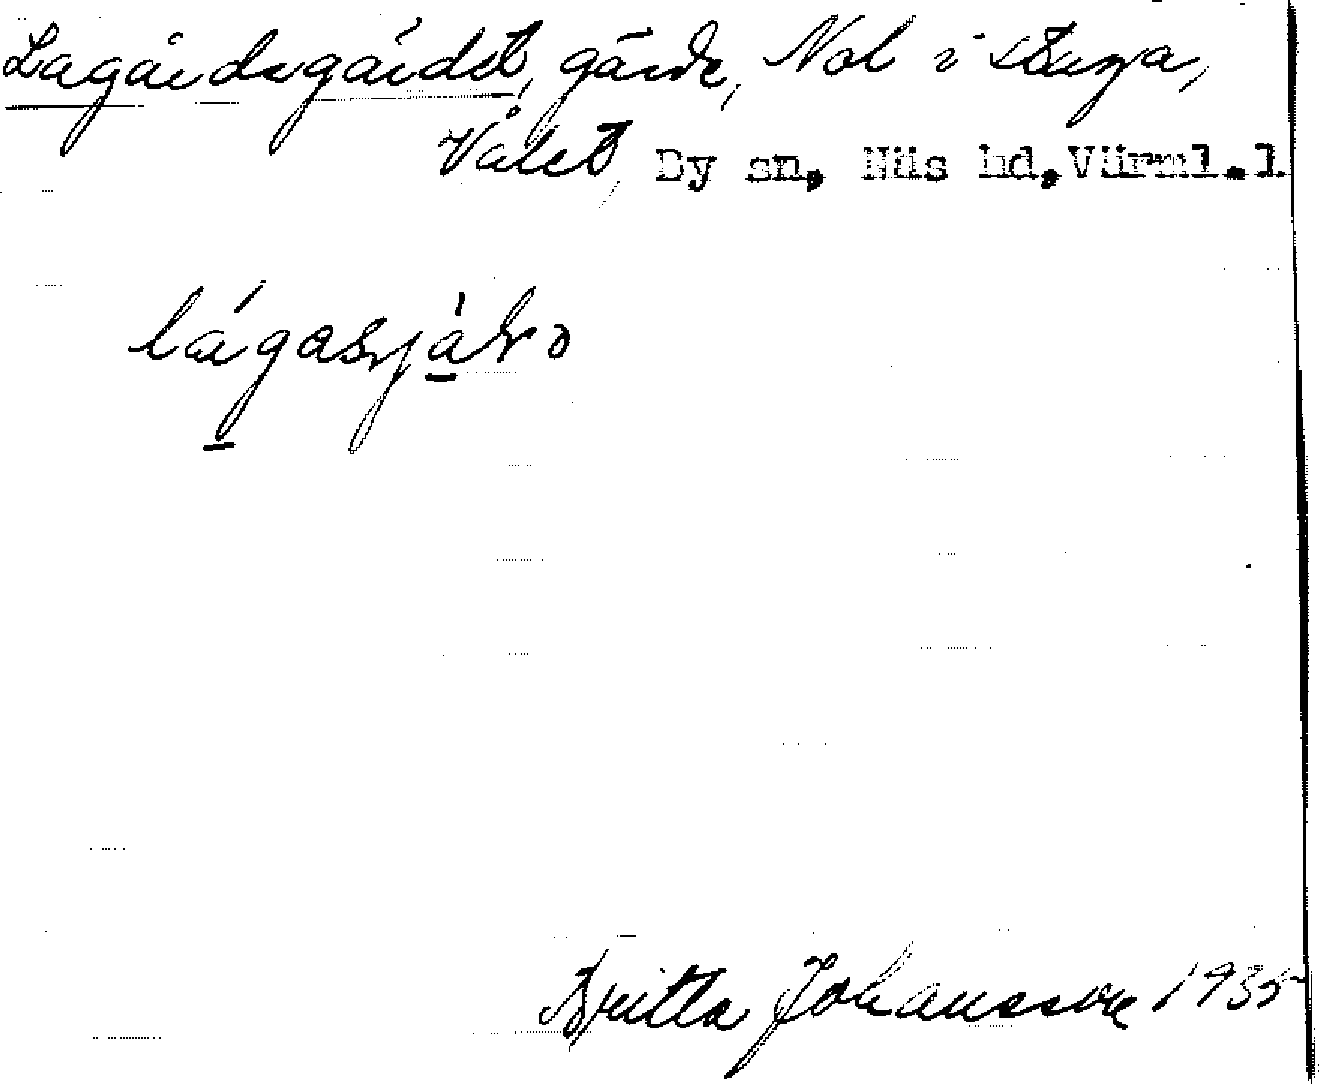 Lagårdsgärdet, gärde, Nol i Stuga,
Vålet, By sn, Näs hd, Värml. l
Britta Johansson 1935